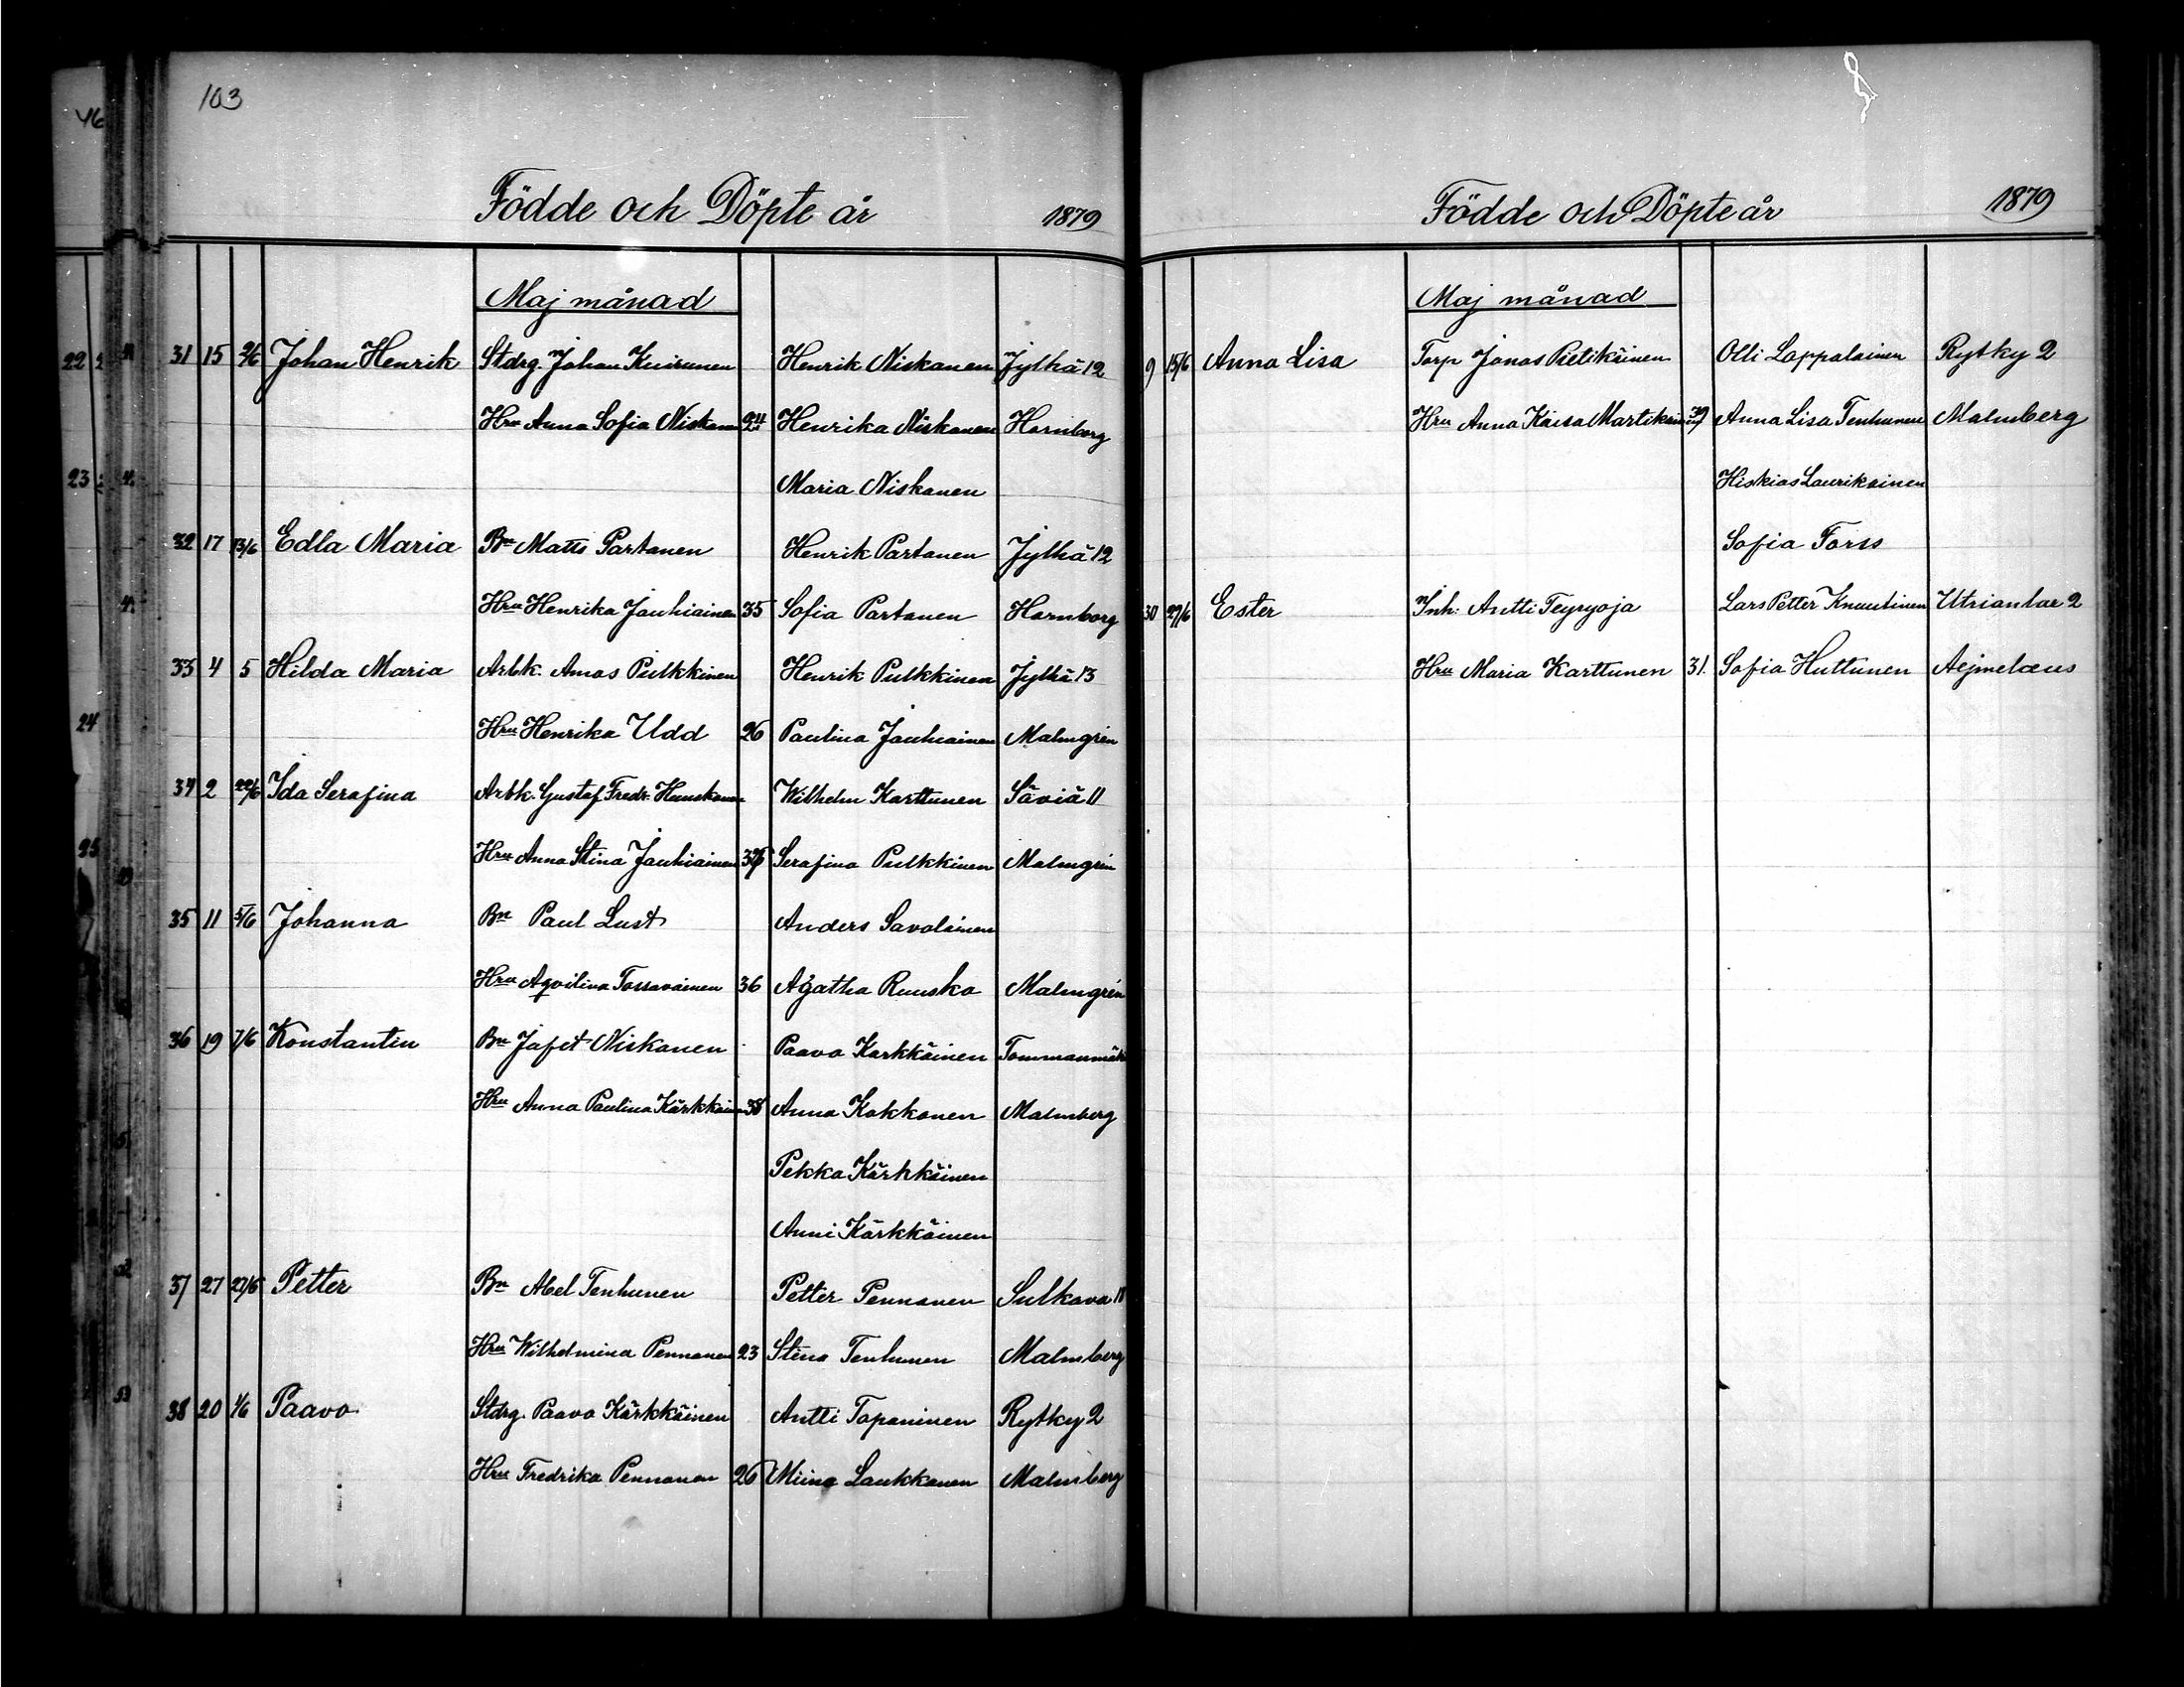 46
103
Födde och Döpte år 1879
Maj månad
31 15 2/6 Johan Henrik Stdrg. Johan Knirunen Henrik Niskanen Jylhä 12
Hru Anna Sofia Niskanen 24 Henrika Niskanen Hornborg
Maria Niskanen
32 17 13/6 Edla Maria Bn Matts Partanen Henrik Partanen Jylhä 12
Hru Henrika Jauhiainen 35 Sofia Partanen Hornborg
33 4 5 Hilda Maria Arbk. Amos Pulkkinen Henrik Pulkkinen Jylhä 13
Hru Henrika Udd 26 Paulina Jauhiainen Malmgrén
34 2 22/6 Ida Serafina Arbk. Gustaf Fredr. Wilhelm Karttunen Säviä 11
Hru Anna Stina Jauhiainen Serafina Pulkkinen Malmgrén
35 11 5/6 Johanna Bn Paul Lust Anders Savolainen
Hru Aqvilina Tossavainen 36 Agatha Ruuska Malmgrén
36 19 7/6 Konstantin Bn Jafet Niskanen Paavo Karkkäinen Tommanmäki
Hru Anna Paulina Kärkkäinen 38 Anna Kokkonen Malmberg
Pekka Kärkkäinen
Anni Kärkkäinen
37 27 27/6 Petter Bn Abel Tenhunen Petter Pennanen Sulkava
Hru Wilhelmina Pennanen 23 Stina Tenhunen Malmberg
38 20 1/6 Paavo Stdrg. Paavo Kärkkäinen Antti Tapaninen Rytky 2
Hru Fredrika Pennanen 26 Miina Laukkanen Malmberg
Födde och Döpte år 1879
Maj månad
9 15/6 Anna Lisa Torp Jonas Pietikäinen Olli Lappalainen Rytky 2
Hru Anna Kaisa Martikainen Anna Lisa Tenhunen Malmberg
Hiskias Laurikainen
Sofia Forss
30 27/6 Ester Inh. Antti Teyryoja Lars Petter Knuutinen Utrianlax 2
Hru Maria Karttunen 31. Sofia Huttunen Aejmelæus